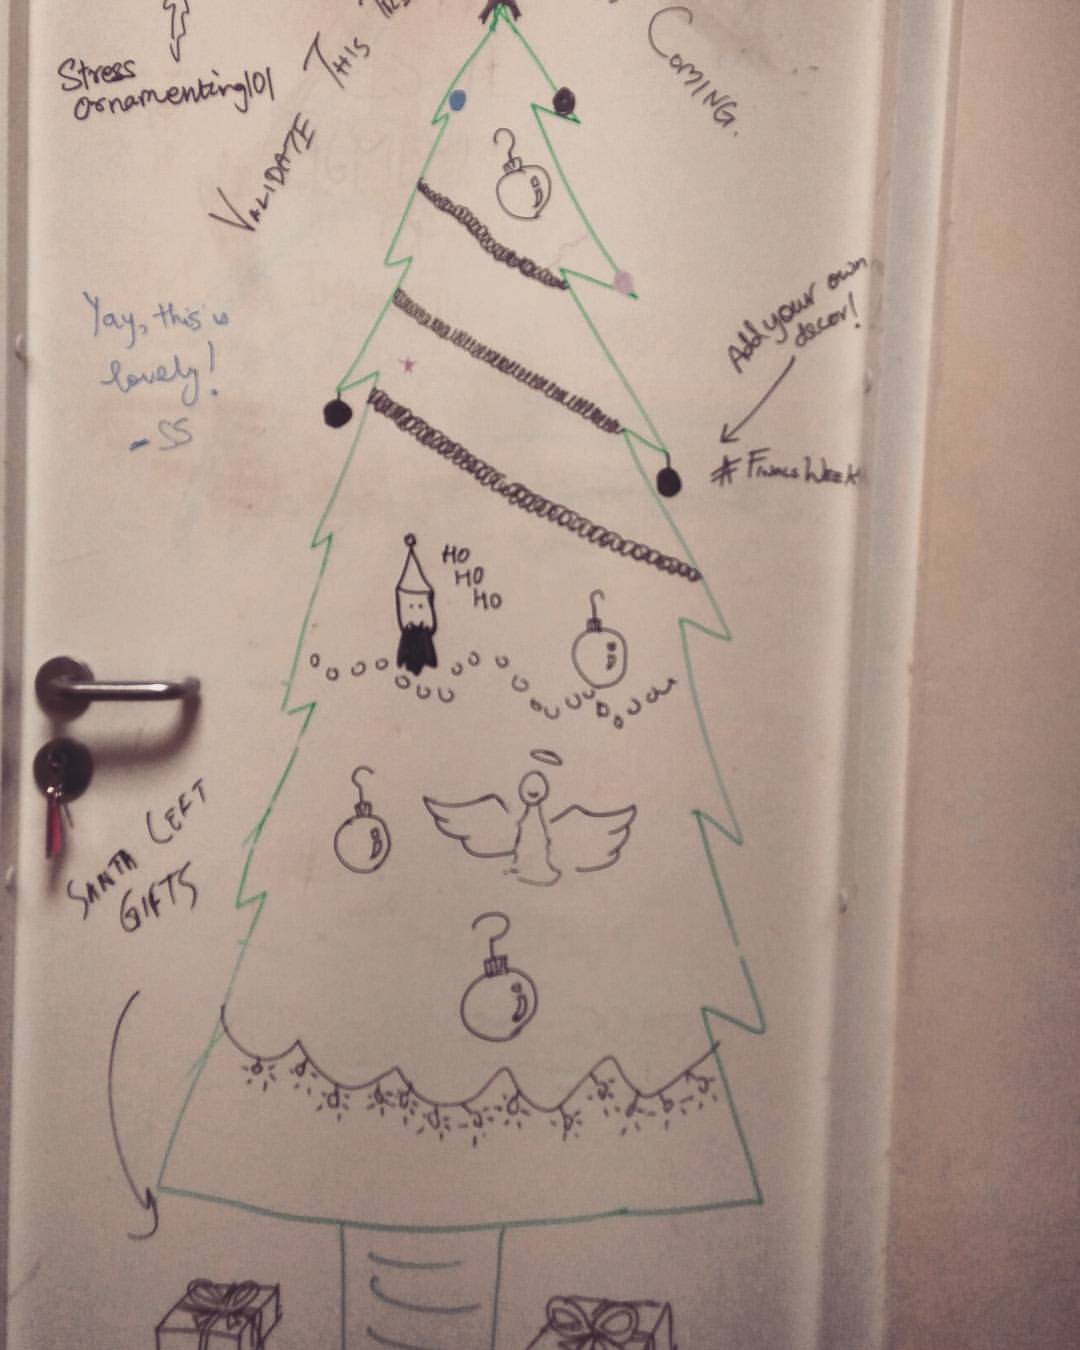 Stress
ornamenting101
VALIDATE THIS
COMING.
Yay, this is
lovely!
- SS
Add your own
decor!
# FINALSWEEK
HO
HO
HO
SANTA LEFT
GIFTS